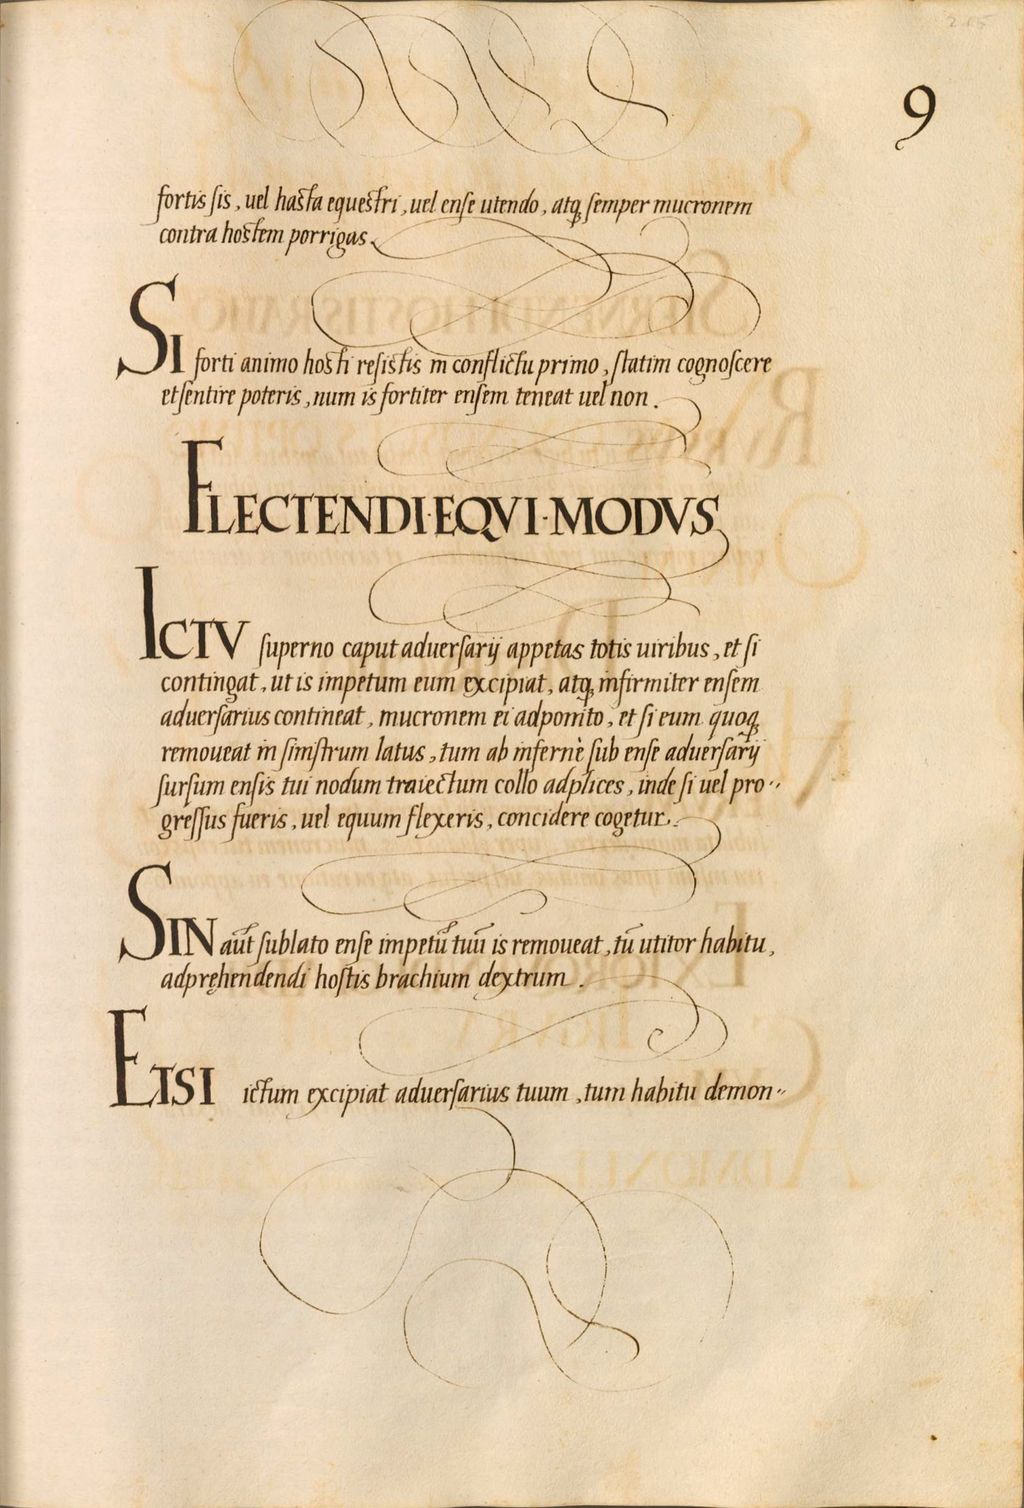 215
9
fortis sis, uel hasta equestri, uel ense utendo, atq; semper mucronem
contra hostem porrigas.
SI forti animo hosti resistis in conflictu primo, statim cognoscere
et sentire poteris, num is fortiter ensem teneat uel non.
FLECTENDI·EQVI·MODVS
ICTV superno caput aduersarij appetas totis uiribus, et si
contingat, ut is impetum eum excipiat, atq; infirmiter ensem
aduersarius contineat, mucronem ei adponito, et si eum quoq;
remoueat in sinistrum latus, tum ab infernè sub ense aduersarij
sursum ensis tui nodum traiectum collo adplices, inde si uel pro-
gressus fueris, uel equum flexeris, concidere cogetur.
SIN aūt sublato ense impetū tuū is remoueat, tū utitor habitu,
adpręhendendi hostis brachium dextrum.
ETSI ictum excipiat aduersarius tuum, tum habitu demon-